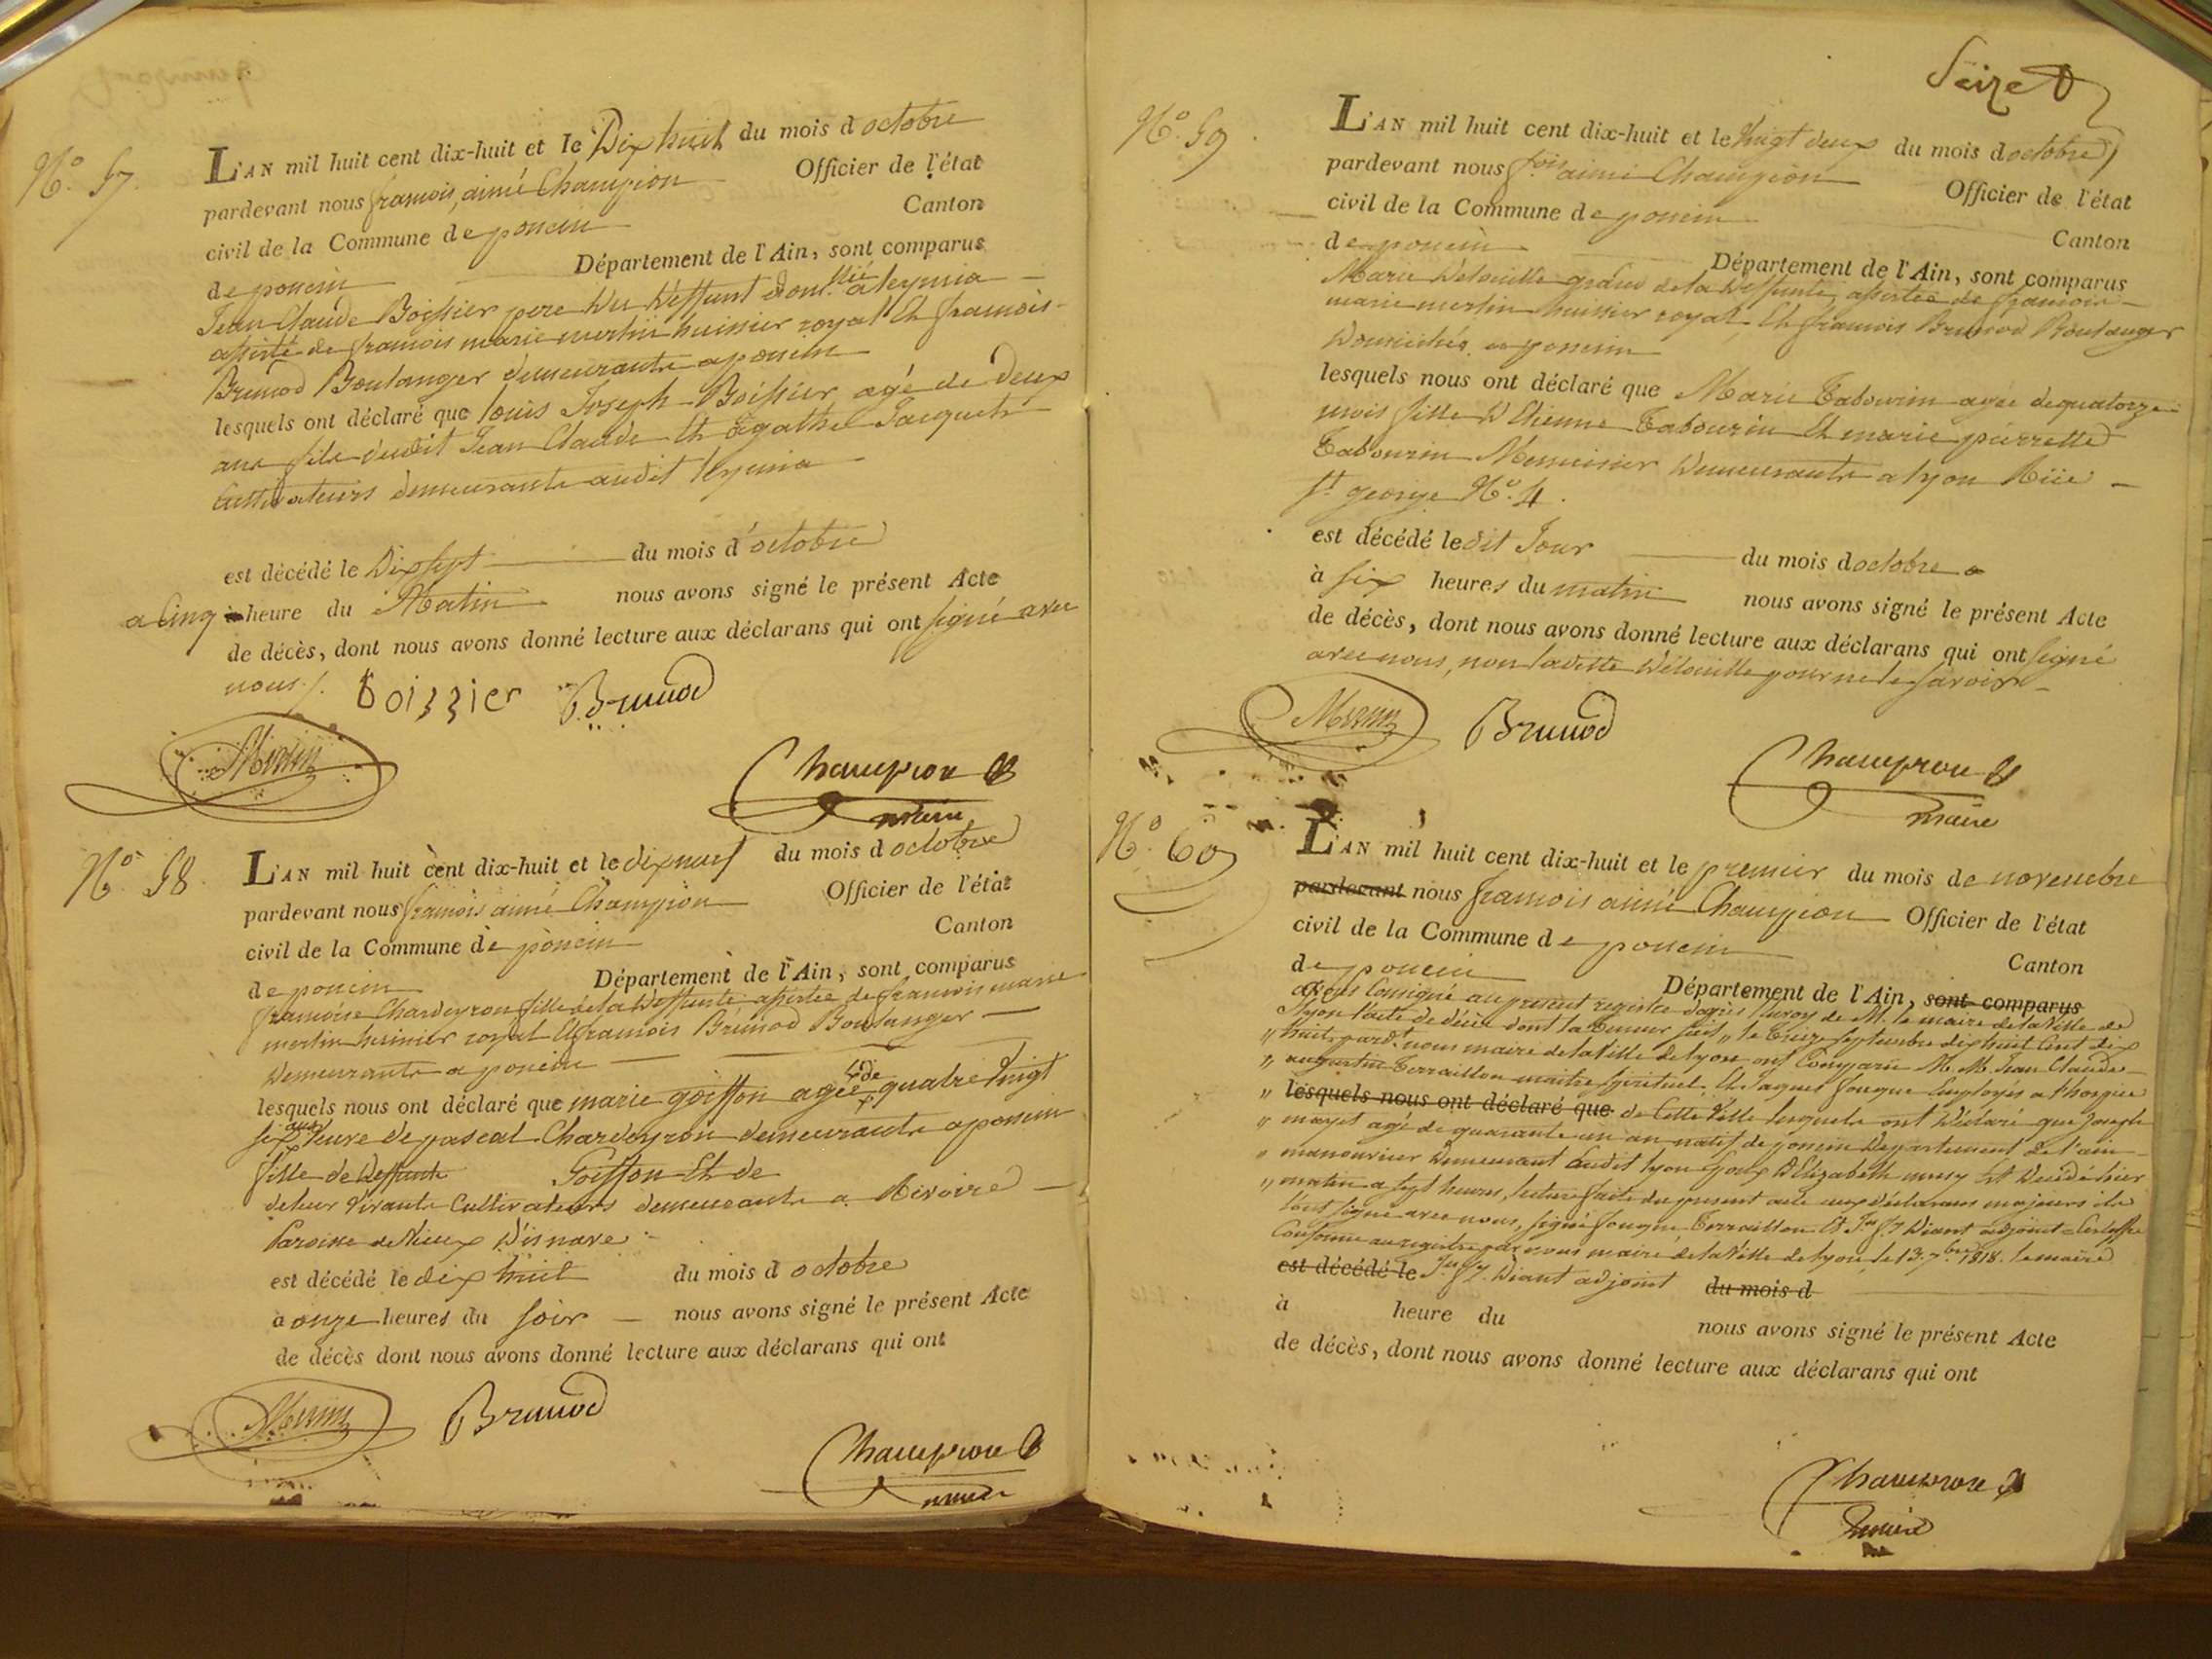 N.° 57.
L'AN mil huit cent dix-huit et le Dix huit du mois d octobre
pardevant nous francois, aimé Champion Officier de l'état
civil de la Commune de poncin Canton
de poncin Département de l'Ain, sont comparus
Jean Claude Boissier pere du deffunt domllié a leymia
assisté de francois marie merlin huissier royal Et francois
Brunod Boulanger demeurants a poncin
lesquels ont déclaré que louis Joseph Boissier agé de deux
ans fils dudit Jean Claude Et agathe Jacquet
Cultivateurs demeurants audit leymia
est décédé le Dix sept du mois d'octobre
a Cinq heure du Matin nous avons signé le présent Acte
de décès, dont nous avons donné lecture aux déclarans qui ont signé avec
nous /.
Boissier Brunod
Merlin
Champion
maire
N.° 58.
L'AN mil huit cent dix-huit et le dix neuf du mois d octobre
pardevant nous francois aimé Champion Officier de l'état
civil de la Commune de poncin Canton
de poncin Département de l'Ain, sont comparus
francoise Chardeyron fille de la deffunte assistée de francois marie
merlin huissier royal Et francois Brunod Boulanger
demeurants a poncin
lesquels nous ont déclaré que marie goiffon agée de quatre vingt
six ans veuve de pascal Chardeyron demeurante a poncin
fille de deffunts Goiffon Et de
de leur vivants Cultivateurs demeurants a Rivoire
Paroisse de Vieux d'isnave
est décédé le dix huit du mois d octobre
à onze heures du soir nous avons signé le présent Acte
de décès dont nous avons donné lecture aux déclarans qui ont
Merlin Brunod
Champion
maire
Seize
N.° 59
L'AN mil huit cent dix-huit et le Vingt deux du mois d octobre
pardevant nous fois aimé Champion Officier de l'état
civil de la Commune de poncin Canton
de poncin Département de l'Ain, sont comparus
Marie Delouille de la deffunte, assistée de francois
marie merlin huissier royal, Et francois Brunod Boulanger
Domiciliés a poncin
lesquels nous ont déclaré que Marie Tabourin agée de quatorze
mois fille d Etienne Tabourin Et marie pierrette
Tabourin Menuisier demeurants a lyon Rüe
St george N.° 4.
est décédé le dit Jour du mois d octobre
à six heures du matin nous avons signé le présent Acte
de décès, dont nous avons donné lecture aux déclarans qui ont signé
avec nous, non ladette Delouille pour ne le savoir
Merlin Brunod
Champion
maire
N.° 60
L'AN mil huit cent dix-huit et le premier du mois de novembre
pardevant nous francois aimé Champion Officier de l'état
civil de la Commune de poncin Canton
de poncin Département de l'Ain, sont comparus
avons Consigné au present registre d'après l'envoy de M. le maire de la Ville de
lyon l'acte de décès dont la teneur suit, " le treize septembre dix huit Cent dix
" huit, pardt nous maire de la Ville de lyon ont Comparu M. M. Jean Claude
" augustin Terraillon maitre spirituel Et Jaques fouque Employés a l'hospice
" lesquels nous ont déclaré que de Cette Ville lesquels ont déclaré que Joseph
" mayet agé de quarante un an natif de poncin Departement de l'ain
" manouvrier demeurant audit lyon Epoux d'Elizabeth Est Decédé hier
" matin a sept heures, lecture faite du present acte aux déclarans majeurs ils
l'ont signé avec nous, signé fouque Terraillon Et Diant adjoint
Conforme au registre par nous maire de la Ville de lyon le 13. 7bre 1818. le maire
est décédé le Diant adjoint du mois d
à heure du nous avons signé le présent Acte
de décès, dont nous avons donné lecture aux déclarans qui ont
Champion
maire